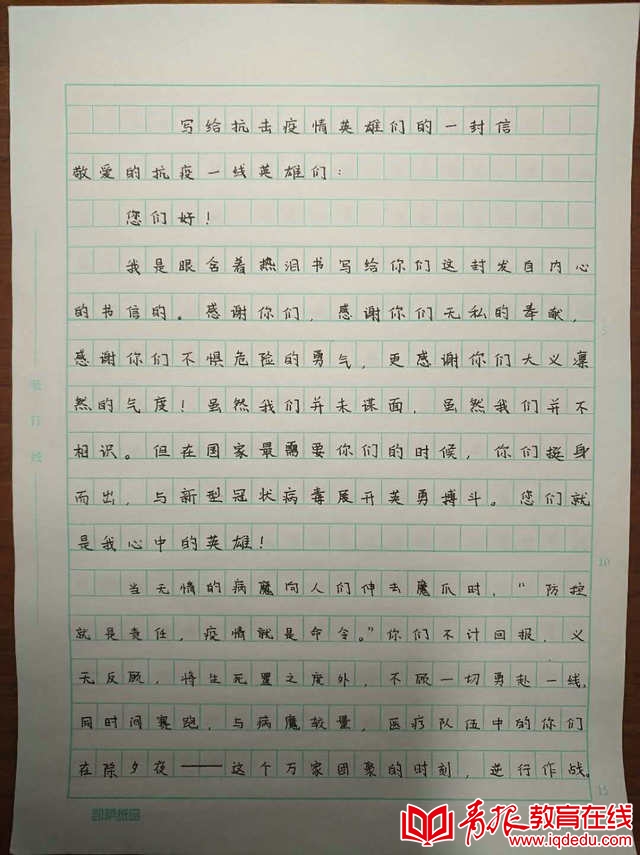 写给抗击疫情英雄们的一封信
敬爱的抗疫一线英雄们：
您们好！
我是眼含着热泪书写给你们这封发自内心
的书信的。感谢你们，感谢你们无私的奉献，
感谢你们不惧危险的勇气，更感谢你们大义凛
然的气度！虽然我们并未谋面，虽然我们并不
相识。但在国家最需要你们的时候，你们挺身
而出，与新型冠状病毒展开英勇搏斗。您们就
是我心中的英雄！
当无情的病魔向人们伸去魔爪时，“防控
就是责任，疫情就是命令。”你们不计回报，义
无反顾，将生死置之度外，不顾一切勇赴一线，
同时间赛跑，与病魔较量，医疗队伍中的你们
在除夕夜——这个万家团聚的时刻，逆行作战。
装订线
5
10
15
青报教育在线
www.iqdedu.com